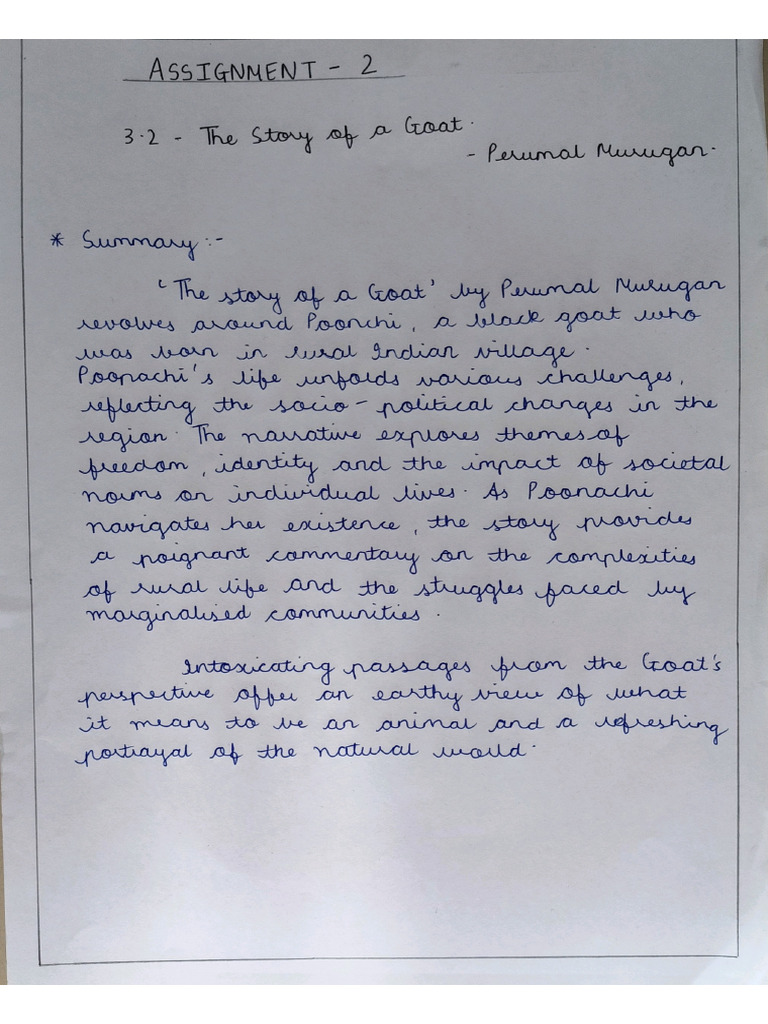 ASSIGNMENT - 2
3.2 - The Story of a Goat.
- Perumal Murugan.
* Summary :-
'The story of a Goat' by Perumal Murugan
revolves around Poonchi, a black goat who
was born in rural Indian village.
Poonachi's life unfolds various challenges,
reflecting the socio-political changes in the
region. The narrative explores themes of
freedom, identity and the impact of societal
norms on individual lives. As Poonachi
navigates her existence, the story provides
a poignant commentary on the complexities
of rural life and the struggles faced by
marginalised communities.
Intoxicating passages from the Goat's
perspective offer an earthy view of what
it means to be an animal and a refreshing
portrayal of the natural world.